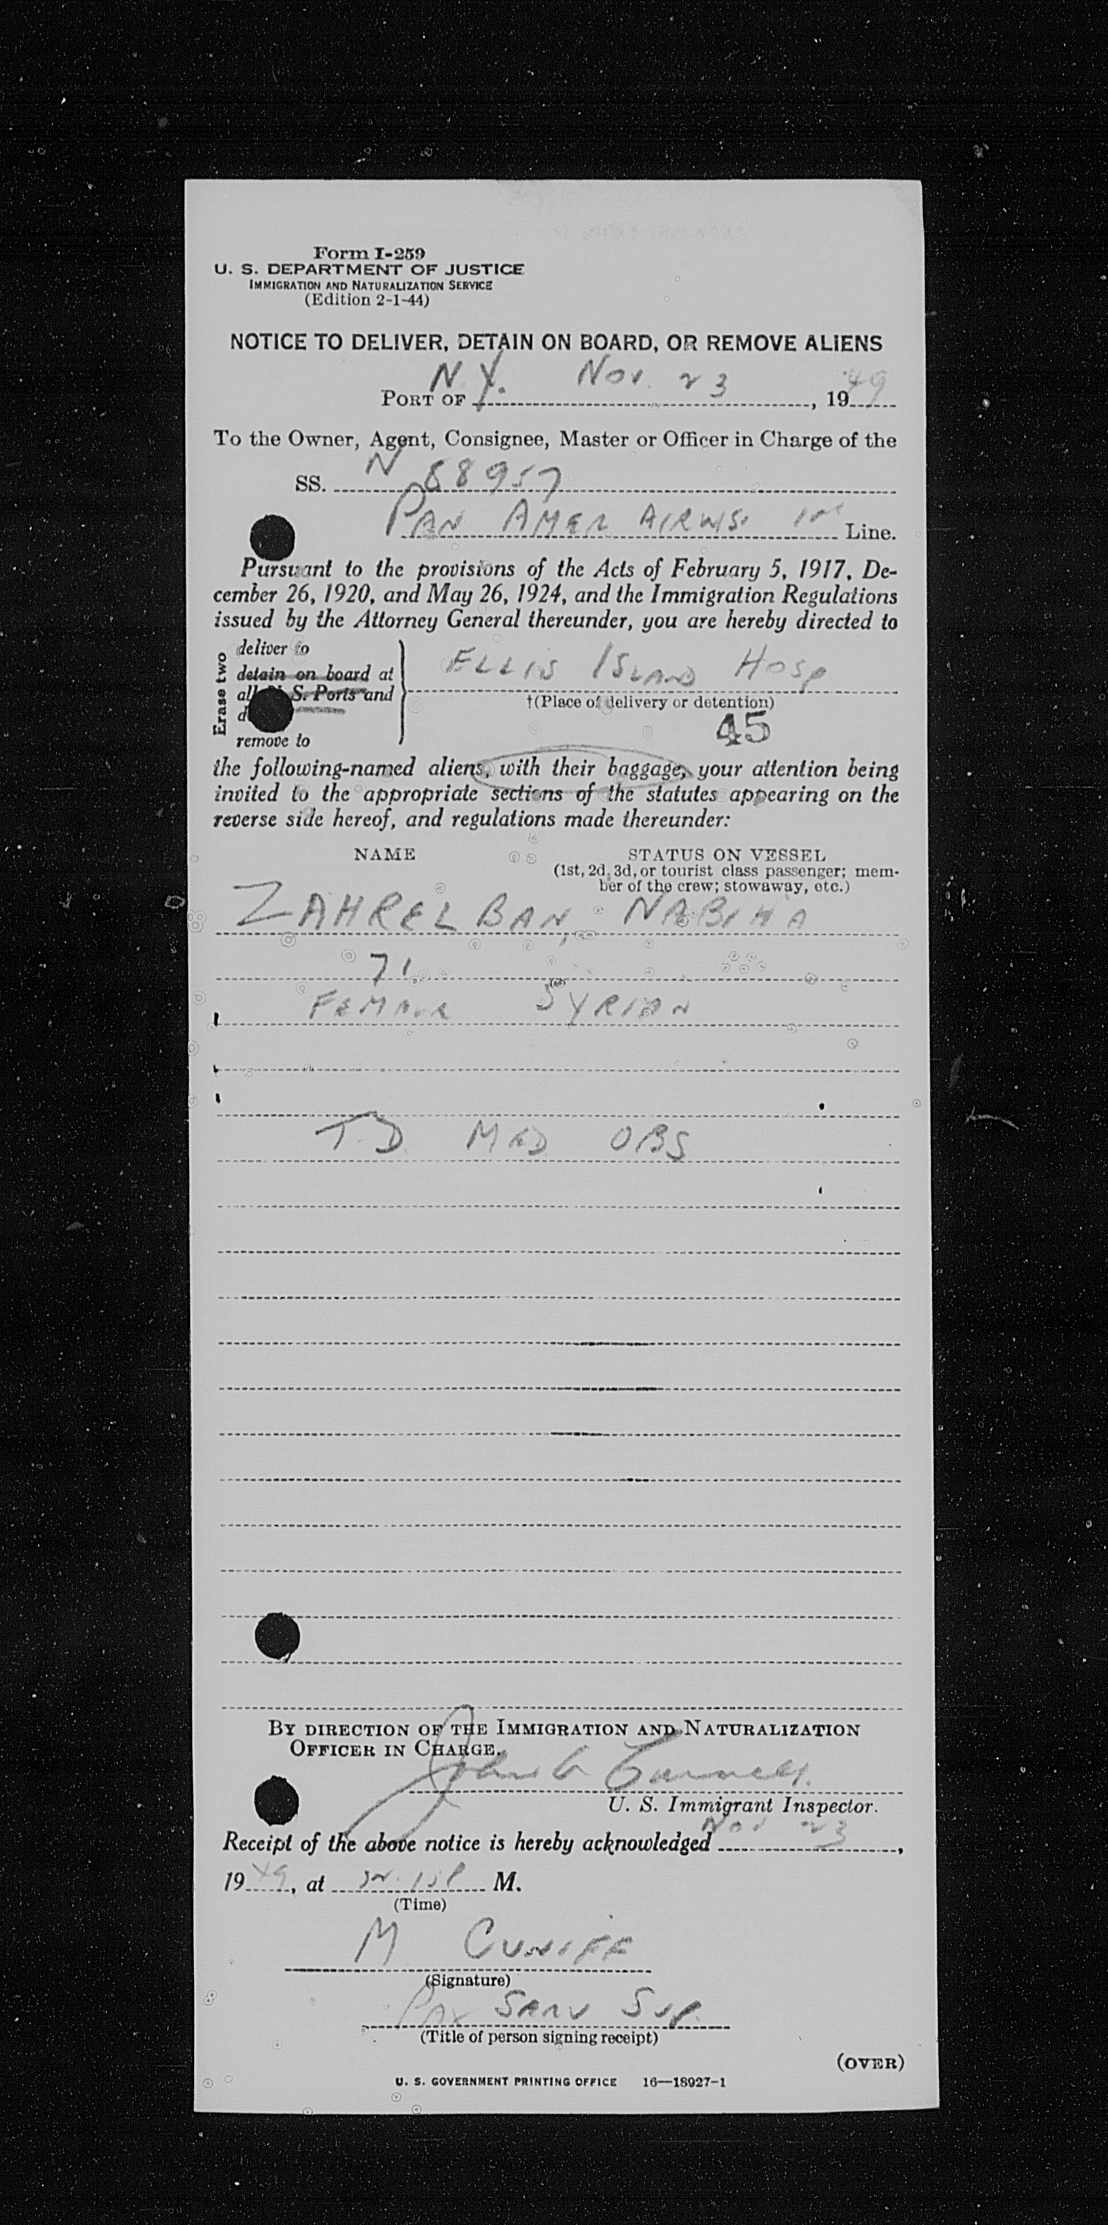 Form I-259
U. S. DEPARTMENT OF JUSTICE
IMMIGRATION AND NATURALIZATION SERVICE
(Edition 2-1-44)
NOTICE TO DELIVER, DETAIN ON BOARD, OR REMOVE ALIENS
PORT OF N.Y. Nov. 23, 1949
To the Owner, Agent, Consignee, Master or Officer in Charge of the
SS. N 88957
PAN AMER AIRWS. Inc Line.
Pursuant to the provisions of the Acts of February 5, 1917, De-
cember 26, 1920, and May 26, 1924, and the Immigration Regulations
issued by the Attorney General thereunder, you are hereby directed to
Erase two
deliver to
detain on board at
all S. Ports and
remove to
ELLIS ISLAND HOSP
†(Place of delivery or detention)
45
the following-named aliens, with their baggage, your attention being
invited to the appropriate sections of the statutes appearing on the
reverse side hereof, and regulations made thereunder:
NAME
STATUS ON VESSEL
(1st, 2d, 3d, or tourist class passenger; mem-
ber of the crew; stowaway, etc.)
ZAHRELBAN, NABIHA
71
FEMALE SYRIAN
T.D MED OBS
BY DIRECTION OF THE IMMIGRATION AND NATURALIZATION
OFFICER IN CHARGE.
John
U. S. Immigrant Inspector.
Receipt of the above notice is hereby acknowledged Nov 23,
1949, at M.
(Time)
M CUNIFF
(Signature)
PAX SERV SUP.
(Title of person signing receipt)
(OVER)
U. S. GOVERNMENT PRINTING OFFICE 16—18927-1